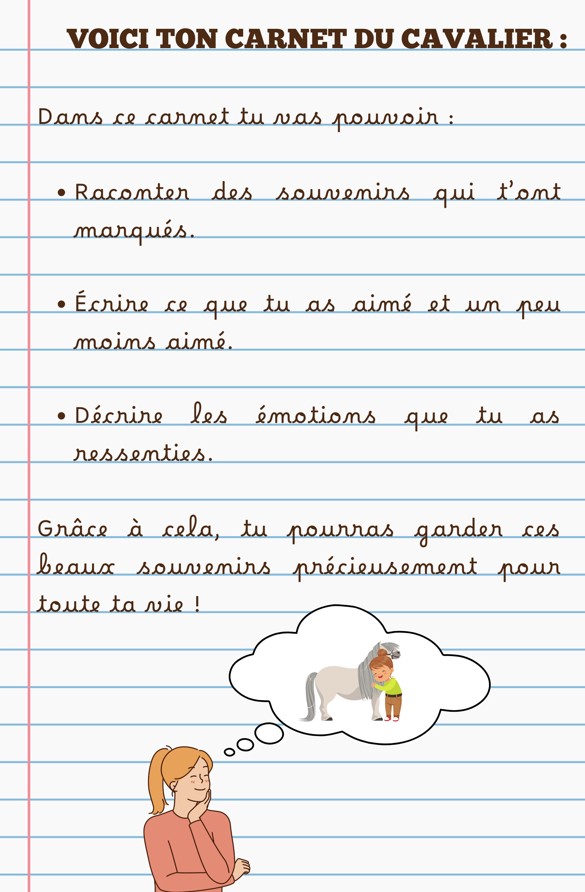 VOICI TON CARNET DU CAVALIER :
Dans ce carnet tu vas pouvoir :
• Raconter des souvenirs qui t'ont
marqués.
• Écrire ce que tu as aimé et un peu
moins aimé.
• Décrire les émotions que tu as
ressenties.
Grâce à cela, tu pourras garder ces
beaux souvenirs précieusement pour
toute ta vie !